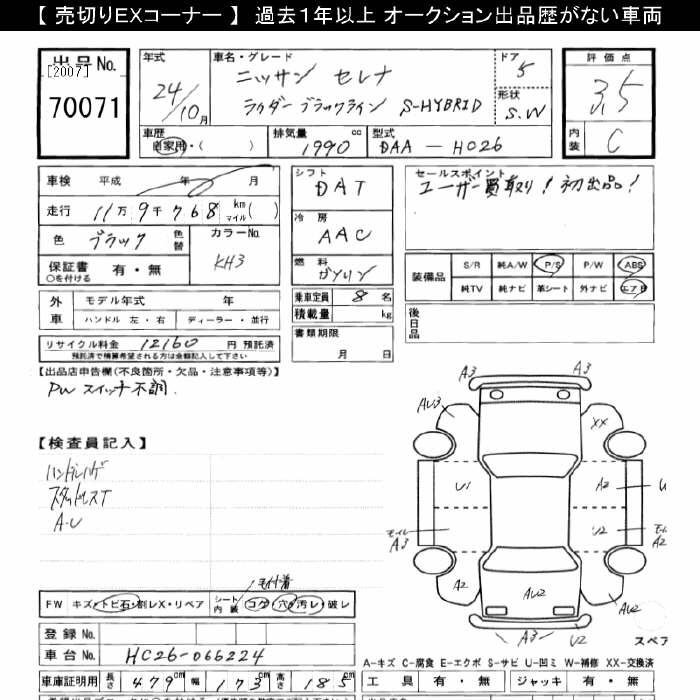 【 売切りEXコーナー 】 過去１年以上 オークション出品歴がない車両
出 品 No.
[2007]
70071
年式
24/10月
車名・グレード
ニッサン セレナ
ライダー ブラックライン S-HYBRID
ドア
5
形状
S.W
評 価 点
3.5
内装
C
車歴
自家用・( )
排気量
1990 cc
型式
DAA - HC26
車検 平成 年 月
走行 11万9千768 km マイル ( )
色 ブラック 色替
カラーNo.
KH3
保証書 有・無
○を付ける
外車
モデル年式 年
ハンドル 左・右 ディーラー・並行
リサイクル料金 12160 円 預託済
預託済で精算希望される方は金額記入して下さい
シフト
DAT
冷 房
AAC
燃 料
ガソリン
乗車定員 8 名
積載量 kg
書類期限
月 日
セールスポイント
ユーザー買取り! 初出品!
装備品
S/R 純A/W P/S P/W ABS
純TV 純ナビ 革シート 外ナビ エアB
後日品
【出品店申告欄(不良箇所・欠品・注意事項等)】
PWスイッチ不調.
【検査員記入】
ハンドルハゲ
スタッドレスT
A-U
A3
A3
AU3
XX
U1
A2
U
モール
A3
U2
A2
A2
AU2
AU2
A3
U2
スペア
FW キズ・トビ石・割レX・リペア
シート内装 コゲ・穴・汚レ・破レ
登 録 No.
車 台 No. HC26-066224
車庫証明用 長さ 479 cm 幅 173 cm 高さ 185 cm
A-キズ C-腐食 E-エクボ S-サビ U-凹ミ W-補修 XX-交換済
工 具 有・無 ジャッキ 有・無